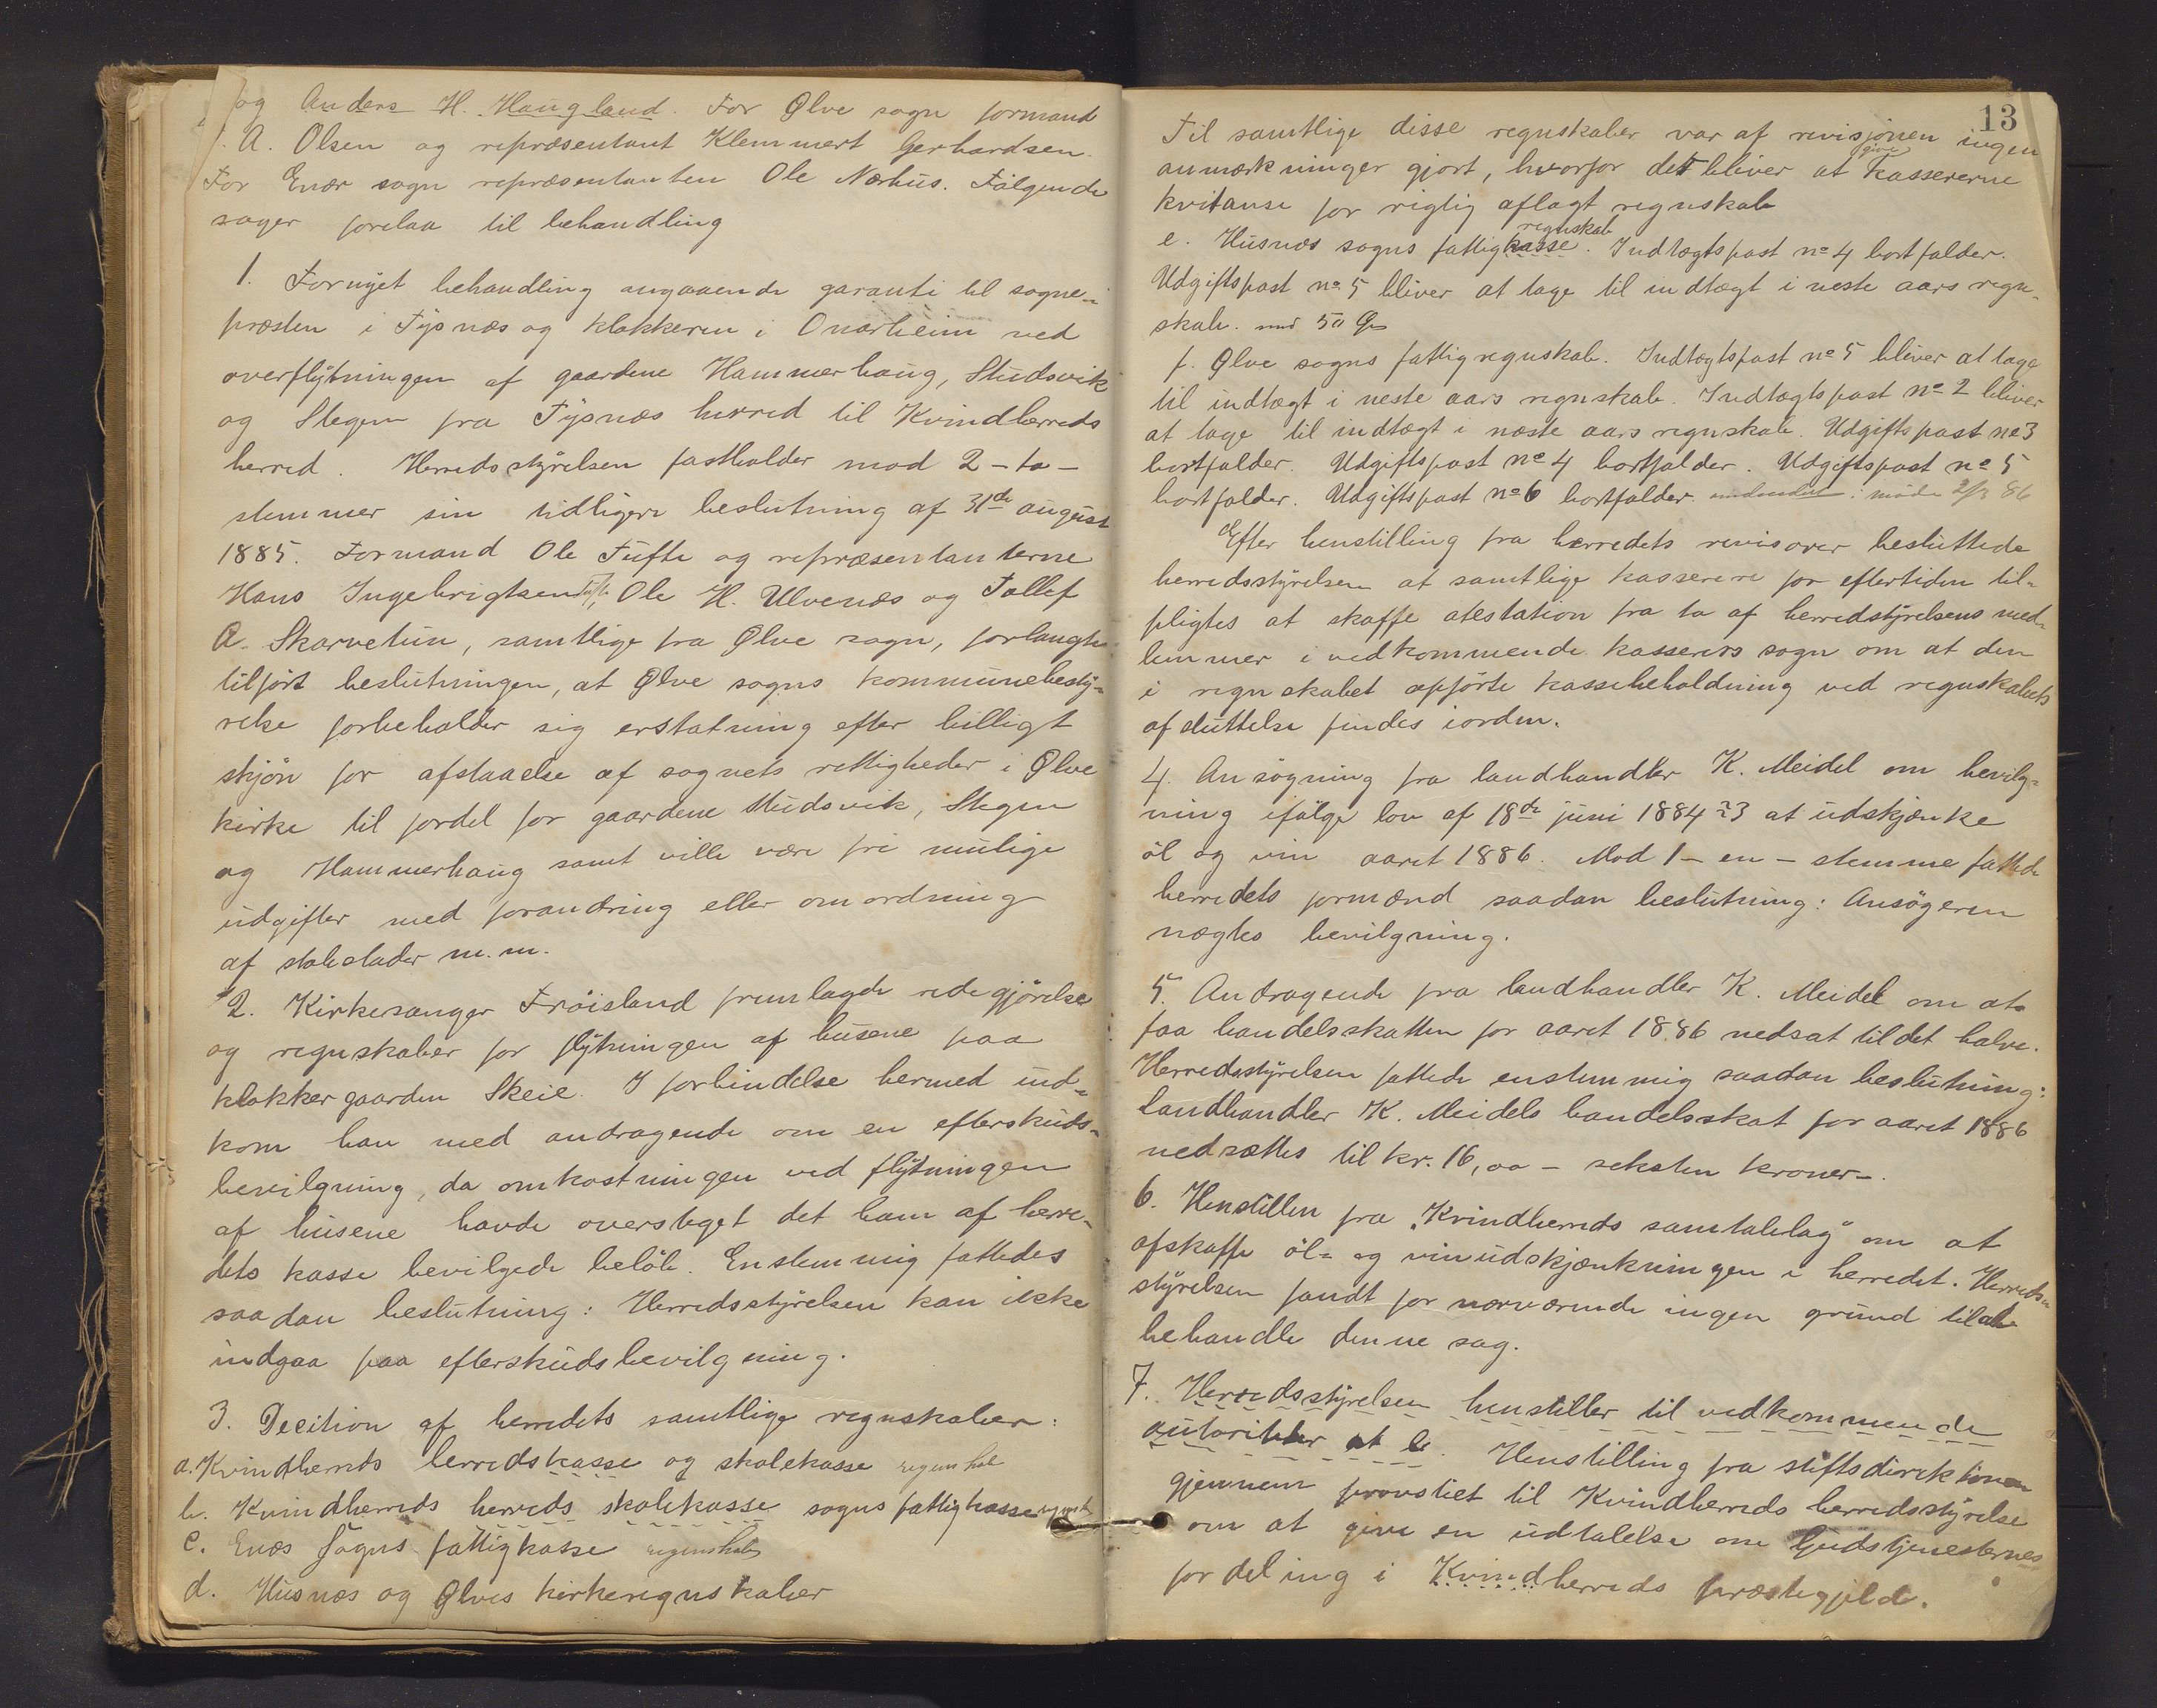 og Anders H. Haugland. For Ølve sogn formand
A. Olsen og repræsentant Klemmert Gerhardsen.
For Enæs sogn repræsentanten Ole Nærhus. Følgende
sager forelaa til behandling
1. Fornyet behandling angaaende garanti til sogne-
præsten i Tysnæs og klokkeren i Onarheim ved
overflytningen af gaardene Hammerhaug, Studsvik
og Stegen fra Tysnæs herred til Kvindherreds
herred. Herredsstyrelsen fastholder mod 2 - to -
stemmer sin tidligere beslutning af 31de august
1885. Formand Ole Tufte og repræsentanterne
Hans Ingebrigtsen Tufte, Ole H. Ulvenæs og Tollef
A. Skarvetun, samtlige fra Ølve sogn, forlangte
tilført beslutningen, at Ølve sogns kommunebesty-
relse forbeholder sig erstatning efter billigt
skjøn for afstaaelse af sognets rettigheder i Ølve
kirke til fordel for gaardene Studsvik, Stegen
og Hammerhaug samt ville være fri mulige
udgifter med forandring eller omordning
af stolestader m.m.
2. Kirkesanger Frøisland fremlagde redegjørelse
og regnskaber for flytningen af husene paa
klokkergaarden Skeie. I forbindelse hermed ind-
kom han med andragende om en efterskuds-
bevilgning, da omkostningen ved flytningen
af husene havde oversteget det ham af herre-
dets kasse bevilgede beløb. Enstemmig fattedes
saadan beslutning: Herredsstyrelsen kan ikke
indgaa paa efterskudsbevilgning.
3. Decition af herredets samtlige regnskaber:
a. Kvindherreds herredskasse og skolekasse regnskab
b. Kvindherreds herreds skolekasse sogns fattigkasse regnsk
c. Enæs sogns fattigkasse regnskab
d. Husnæs og Ølves kirkeregnskaber
13
Til samtlige disse regnskaber var af revisjonen ingen
anmærkninger gjort, hvorfor det bliver at give kassererne
kvitanse for rigtig aflagt regnskab
e. Husnæs sogns fattigkasse regnskab. Indtægtspost no 4 bortfalder.
Udgiftspost no 5 bliver at tage til indtægt i neste aars regn-
skab. med 50 Øre
f. Ølve sogns fattigregnskab. Indtægtspost no 5 bliver at tage
til indtægt i neste aars regnskab. Indtægtspost no 2 bliver
at tage til indtægt i næste aars regnskab. Udgiftspost no 3
bortfalder. Udgiftspost no 4 bortfalder. Udgiftspost no 5
bortfalder. Udgiftspost no 6 bortfalder. i møde 2/3 86
Efter henstilling fra herredets revisorer besluttede
herredsstyrelsen at samtlige kasserere for eftertiden til-
pligtes at skaffe atestation fra to af herredstyrelsens med-
lemmer i vedkommende kasserers sogn om at den
i regnskabet opførte kassebeholdning ved regnskabets
afsluttelse findes iorden.
4. Ansøgning fra landhandler K. Meidel om bevilg-
ning ifølge lov af 18de juni 1884 § 3 at udskjænke
øl og vin aaret 1886. Mod 1 - en - stemme fattede
herredets formænd saadan beslutning: Ansøgeren
nægtes bevilgning.
5. Andragende fra landhandler K. Meidel om at
faa handelsskatten for aaret 1886 nedsat til det halve.
Herredsstyrelsen fattede enstemmig saadan beslutning:
Landhandler K. Meidels handelsskat for aaret 1886
nedsættes til kr. 16,00 - seksten kroner -.
6. Henstillen fra "Kvindherreds samtalelag" om at
afskaffe øl- og vinudskjænkningen i herredet. Herreds-
styrelsen fandt for nærværende ingen grund til at
behandle denne sag.
7. Herredsstyrelsen henstiller til vedkommende
autoriteter at b. Henstilling fra stiftsdirektionen
gjennem provstiet til Kvindherreds herredsstyrelse
om at give en udtalelse om Gudstjenesternes
fordeling i Kvindherreds præstegjeld.